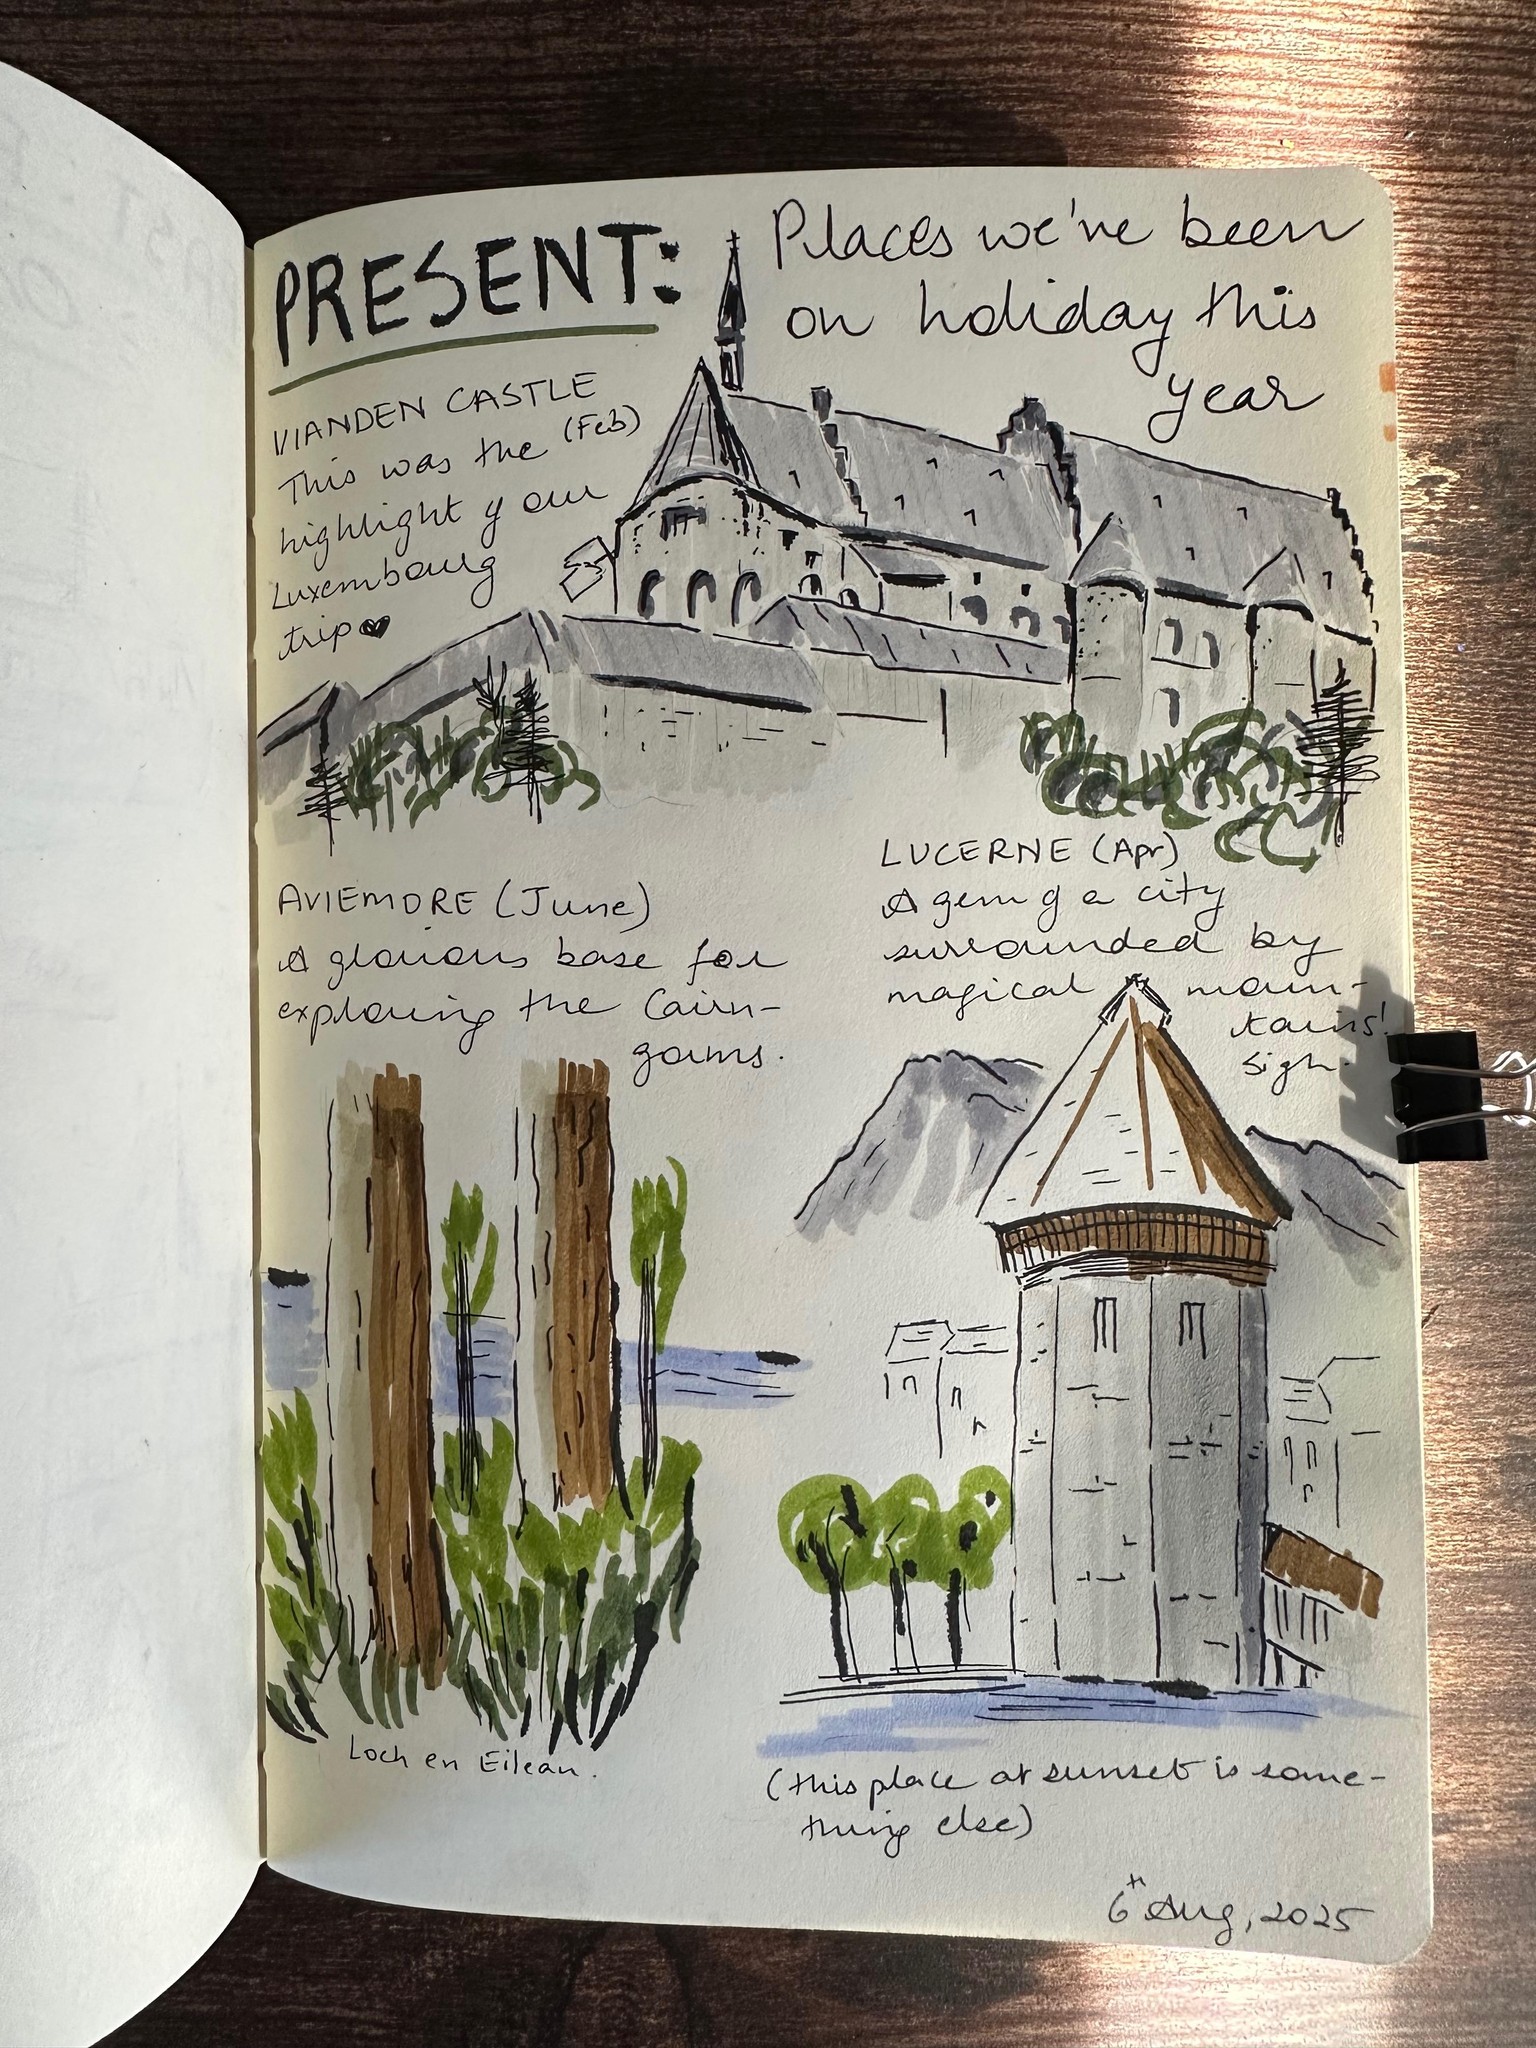 PRESENT:
Places we've been
on holiday this
year
VIANDEN CASTLE
(Feb)
This was the
highlight of our
Luxembourg
trip ♥
LUCERNE (Apr)
A gem of a city
surrounded by
magical moun-
tains!
sigh.
AVIEMORE (June)
A glorious base for
exploring the Cairn-
goms.
Loch en Eilean.
(this place at sunset is some-
thing else)
6th Aug, 2025